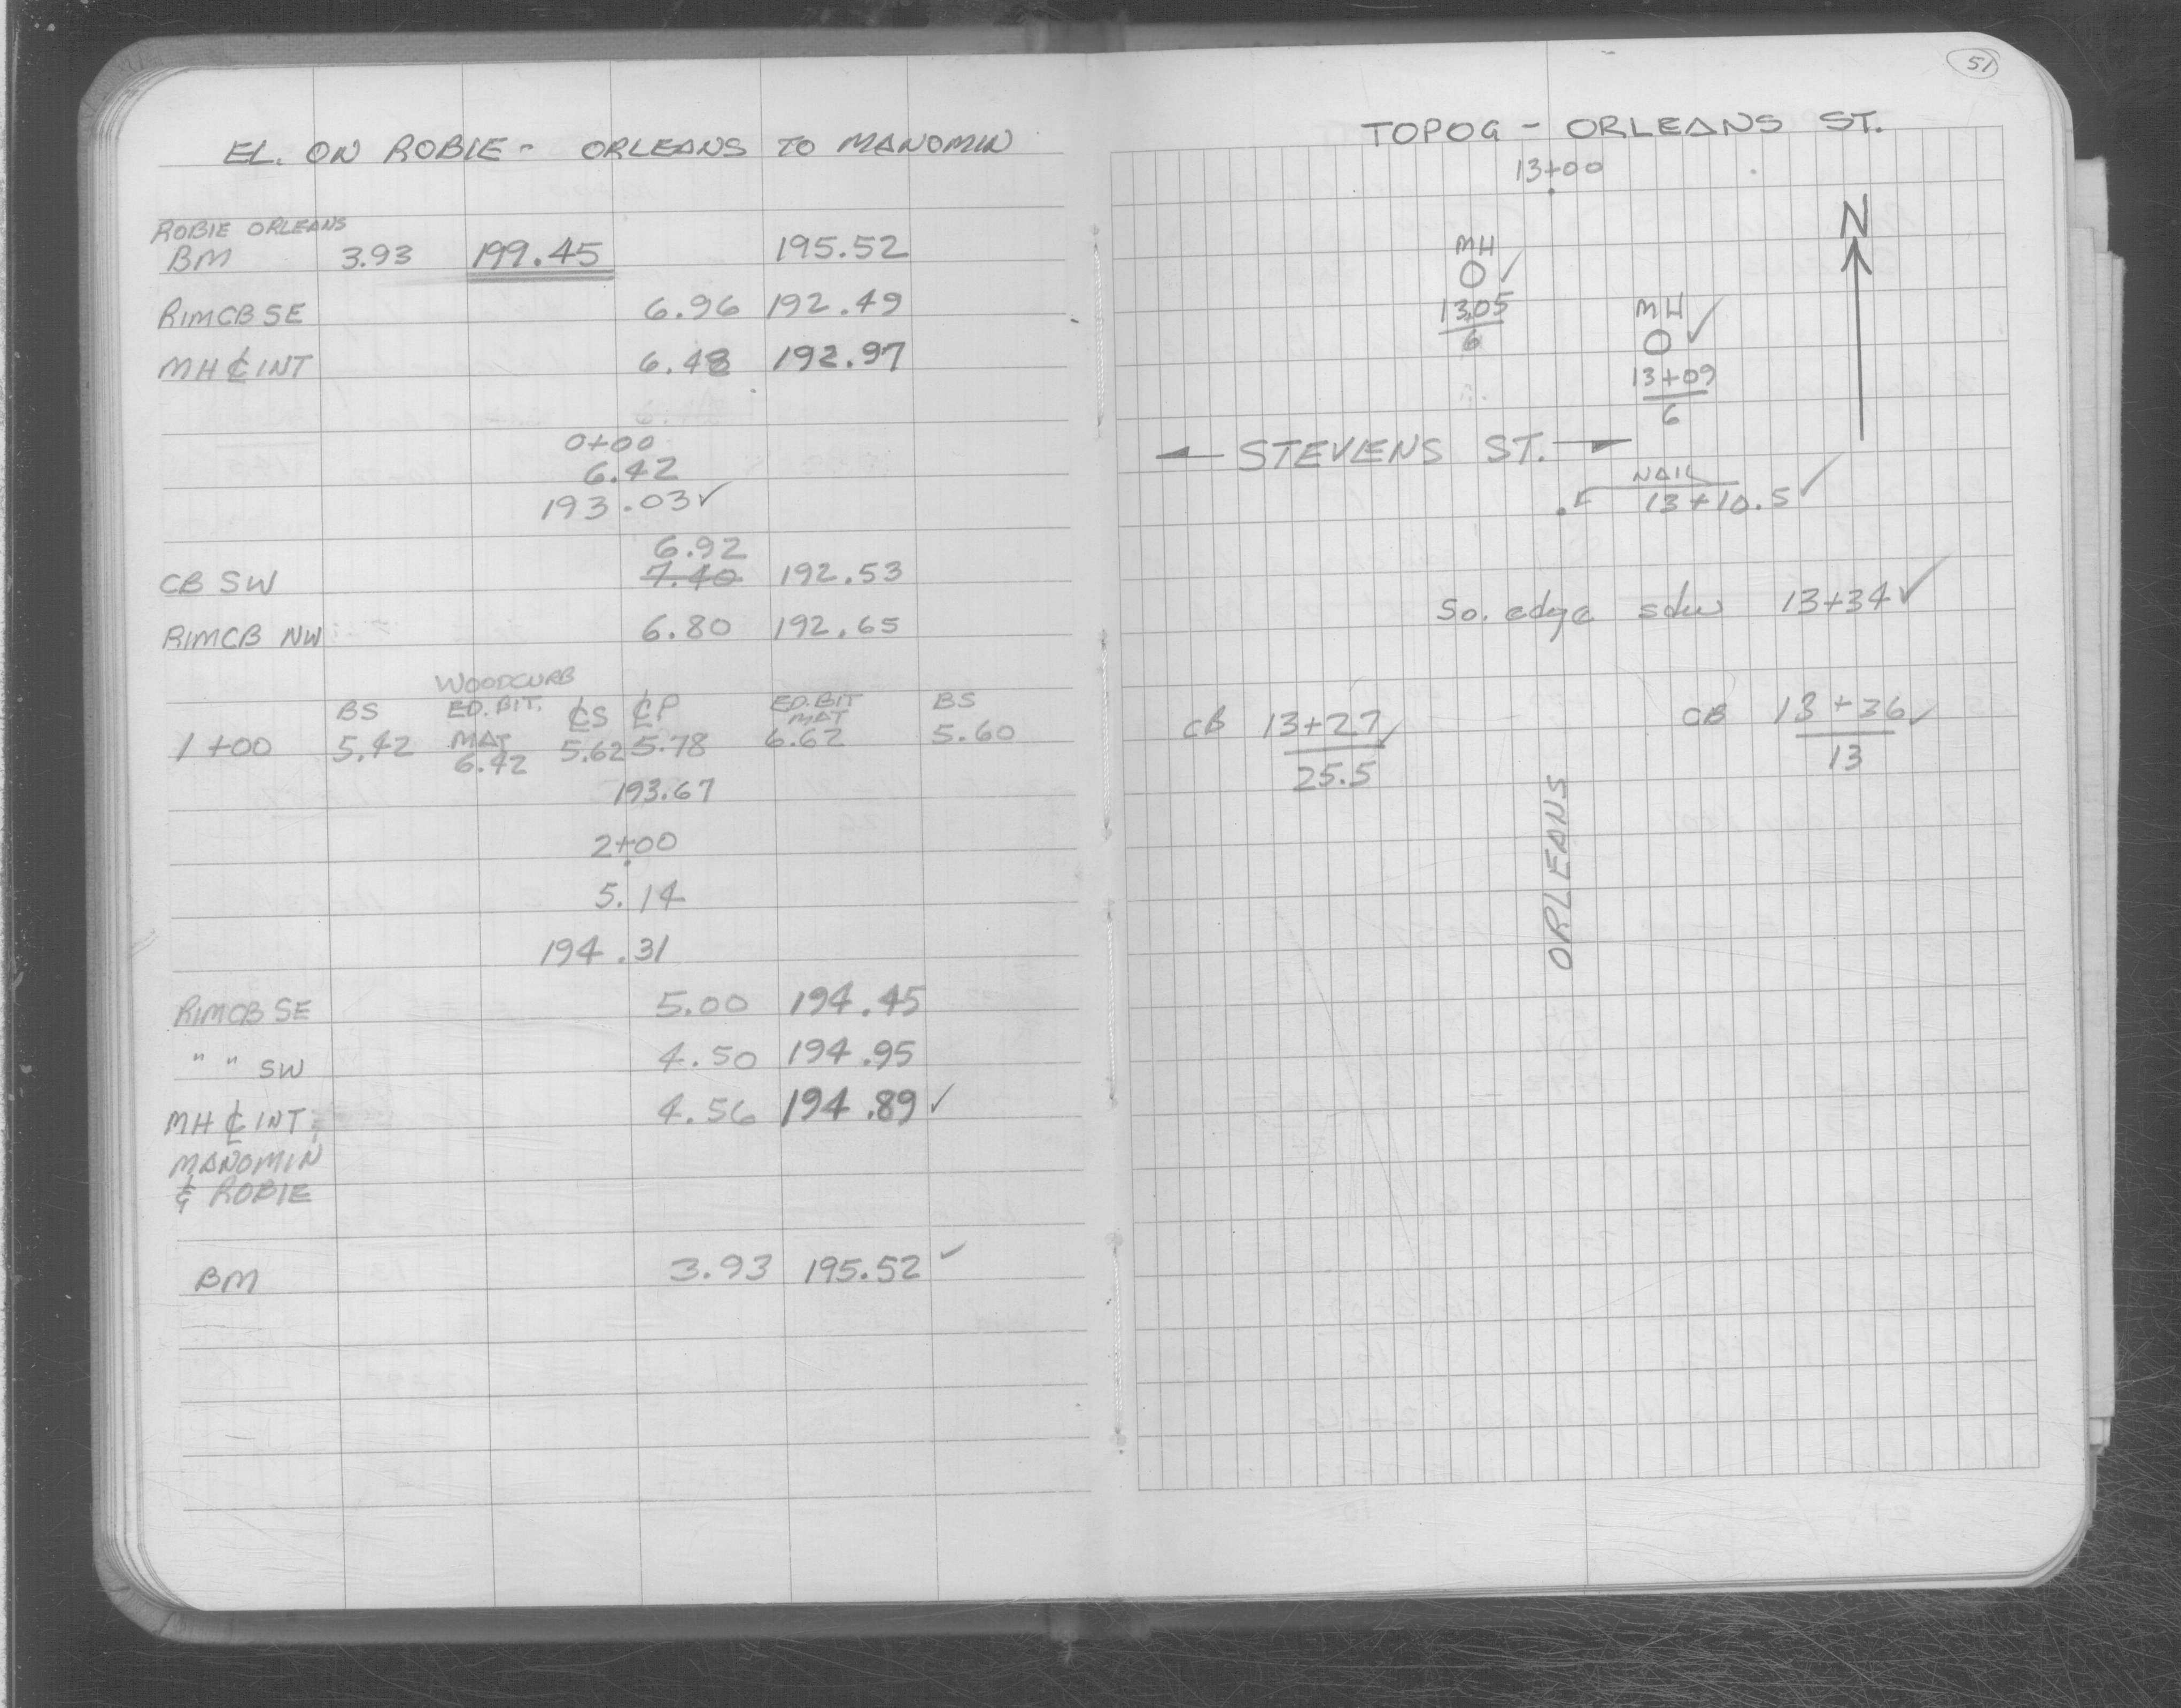 EL. ON ROBIE - ORLEANS TO MANOMIN
ROBIE ORLEANS
BM 3.93 199.45 195.52
RIMCB SE 6.96 192.49
MH ℄ INT 6.48 192.97
0+00
6.42
193.03✓
6.92
CB SW 7.40 192.53
RIMCB NW 6.80 192.65
WOODCURB
BS ED. BIT. ℄S ℄P ED. BIT BS
MAT MAT
1+00 5.42 6.42 5.62 5.78 6.62 5.60
193.67
2+00
5.14
194.31
RIMCB SE 5.00 194.45
" " SW 4.50 194.95
MH ℄ INT, 4.56 194.89 ✓
MANOMIN
& ROBIE
BM 3.93 195.52 ✓
51
TOPOG - ORLEANS ST.
13+00
N
MH
✓
13+05
6
MH
✓
13+09
6
← STEVENS ST. →
NAIL
13+10.5 ✓
So. edge sdw 13+34 ✓
CB 13+27 ✓
25.5
CB 13+36 ✓
13
ORLEANS